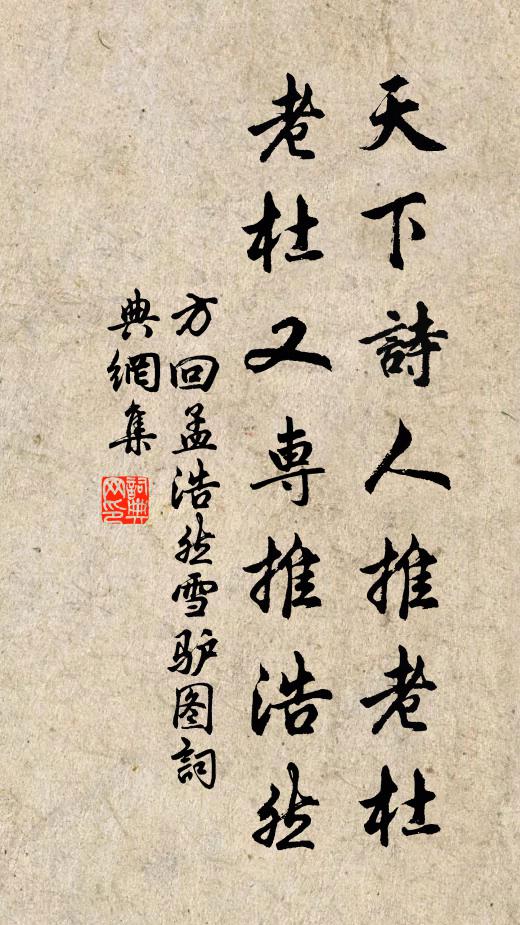 天下詩人推老杜
老杜又専推浩然
方回孟浩然雪驴图詞
典網集
詞典
网印